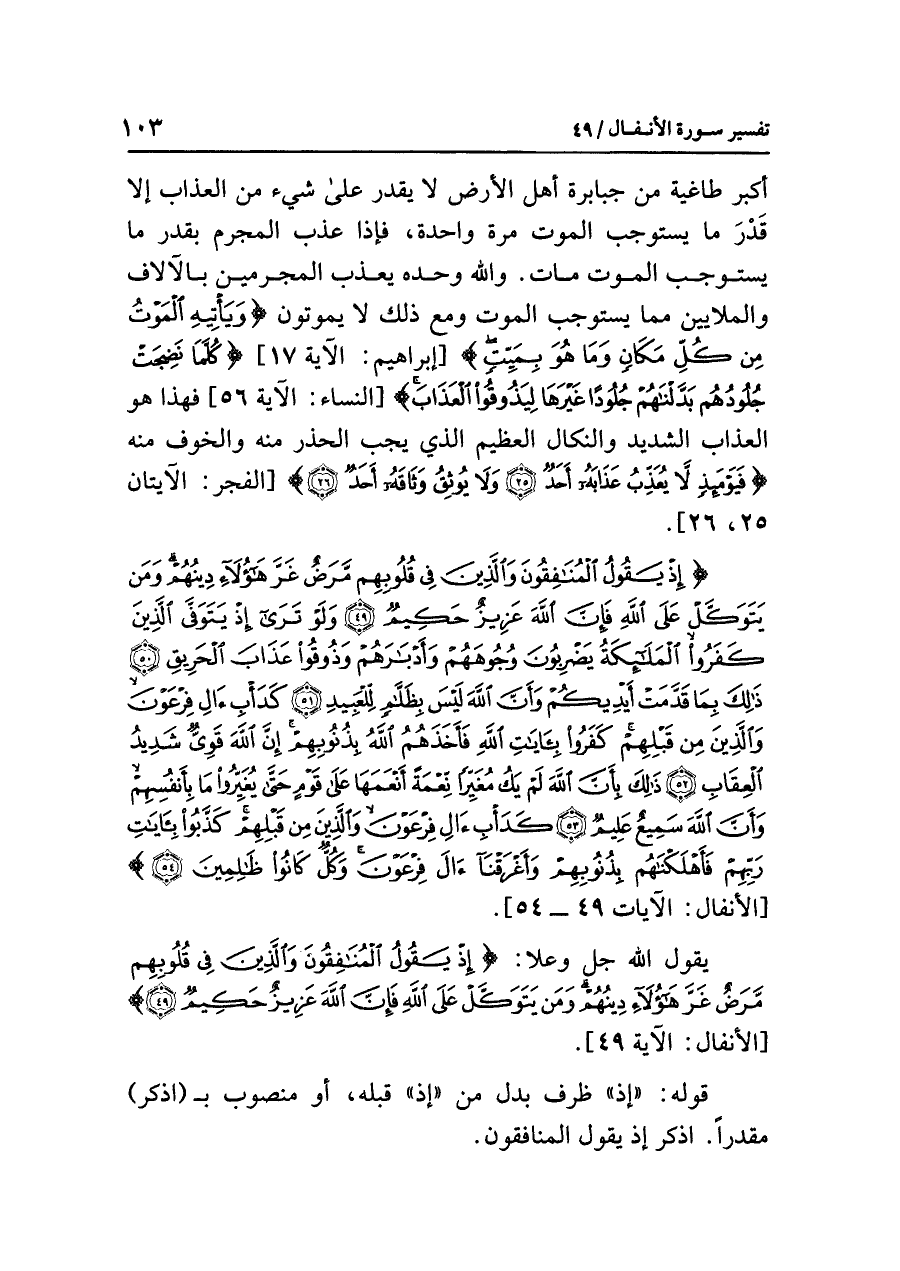 تفسير سورة الأنفال / ٤٩
١٠٣
أكبر طاغية من جبابرة أهل الأرض لا يقدر علىٰ شيء من العذاب إلا
قَدْرَ ما يستوجب الموت مرة واحدة، فإذا عذب المجرم بقدر ما
يستوجب الموت مات. والله وحده يعذب المجرمين بالآلاف
والملايين مما يستوجب الموت ومع ذلك لا يموتون ﴿ وَيَأْتِيهِ ٱلْمَوْتُ
مِن كُلِّ مَكَانٍ وَمَا هُوَ بِمَيِّتٍۖ ﴾ [إبراهيم: الآية ١٧] ﴿ كُلَّمَا نَضِجَتْ
جُلُودُهُم بَدَّلْنَٰهُمْ جُلُودًا غَيْرَهَا لِيَذُوقُوا۟ ٱلْعَذَابَۗ ﴾ [النساء: الآية ٥٦] فهذا هو
العذاب الشديد والنكال العظيم الذي يجب الحذر منه والخوف منه
﴿ فَيَوْمَئِذٍ لَّا يُعَذِّبُ عَذَابَهُۥٓ أَحَدٌ ۝٢٥ وَلَا يُوثِقُ وَثَاقَهُۥٓ أَحَدٌ ۝٢٦ ﴾ [الفجر: الآيتان
٢٥، ٢٦].
﴿ إِذْ يَقُولُ ٱلْمُنَٰفِقُونَ وَٱلَّذِينَ فِى قُلُوبِهِم مَّرَضٌ غَرَّ هَٰٓؤُلَآءِ دِينُهُمْۗ وَمَن
يَتَوَكَّلْ عَلَى ٱللَّهِ فَإِنَّ ٱللَّهَ عَزِيزٌ حَكِيمٌ ۝٤٩ وَلَوْ تَرَىٰٓ إِذْ يَتَوَفَّى ٱلَّذِينَ
كَفَرُوا۟ۙ ٱلْمَلَٰٓئِكَةُ يَضْرِبُونَ وُجُوهَهُمْ وَأَدْبَٰرَهُمْ وَذُوقُوا۟ عَذَابَ ٱلْحَرِيقِ ۝٥٠
ذَٰلِكَ بِمَا قَدَّمَتْ أَيْدِيكُمْ وَأَنَّ ٱللَّهَ لَيْسَ بِظَلَّٰمٍ لِّلْعَبِيدِ ۝٥١ كَدَأْبِ ءَالِ فِرْعَوْنَۙ
وَٱلَّذِينَ مِن قَبْلِهِمْۚ كَفَرُوا۟ بِـَٔايَٰتِ ٱللَّهِ فَأَخَذَهُمُ ٱللَّهُ بِذُنُوبِهِمْۗ إِنَّ ٱللَّهَ قَوِىٌّ شَدِيدُ
ٱلْعِقَابِ ۝٥٢ ذَٰلِكَ بِأَنَّ ٱللَّهَ لَمْ يَكُ مُغَيِّرًا نِّعْمَةً أَنْعَمَهَا عَلَىٰ قَوْمٍ حَتَّىٰ يُغَيِّرُوا۟ مَا بِأَنفُسِهِمْۙ
وَأَنَّ ٱللَّهَ سَمِيعٌ عَلِيمٌ ۝٥٣ كَدَأْبِ ءَالِ فِرْعَوْنَۙ وَٱلَّذِينَ مِن قَبْلِهِمْۚ كَذَّبُوا۟ بِـَٔايَٰتِ
رَبِّهِمْ فَأَهْلَكْنَٰهُم بِذُنُوبِهِمْ وَأَغْرَقْنَآ ءَالَ فِرْعَوْنَۚ وَكُلٌّ كَانُوا۟ ظَٰلِمِينَ ۝٥٤ ﴾
[الأنفال: الآيات ٤٩ ــ ٥٤].
يقول الله جل وعلا: ﴿ إِذْ يَقُولُ ٱلْمُنَٰفِقُونَ وَٱلَّذِينَ فِى قُلُوبِهِم
مَّرَضٌ غَرَّ هَٰٓؤُلَآءِ دِينُهُمْۗ وَمَن يَتَوَكَّلْ عَلَى ٱللَّهِ فَإِنَّ ٱللَّهَ عَزِيزٌ حَكِيمٌ ۝٤٩ ﴾
[الأنفال: الآية ٤٩].
قوله: «إذ» ظرف بدل من «إذ» قبله، أو منصوب بـ (اذكر)
مقدراً. اذكر إذ يقول المنافقون.